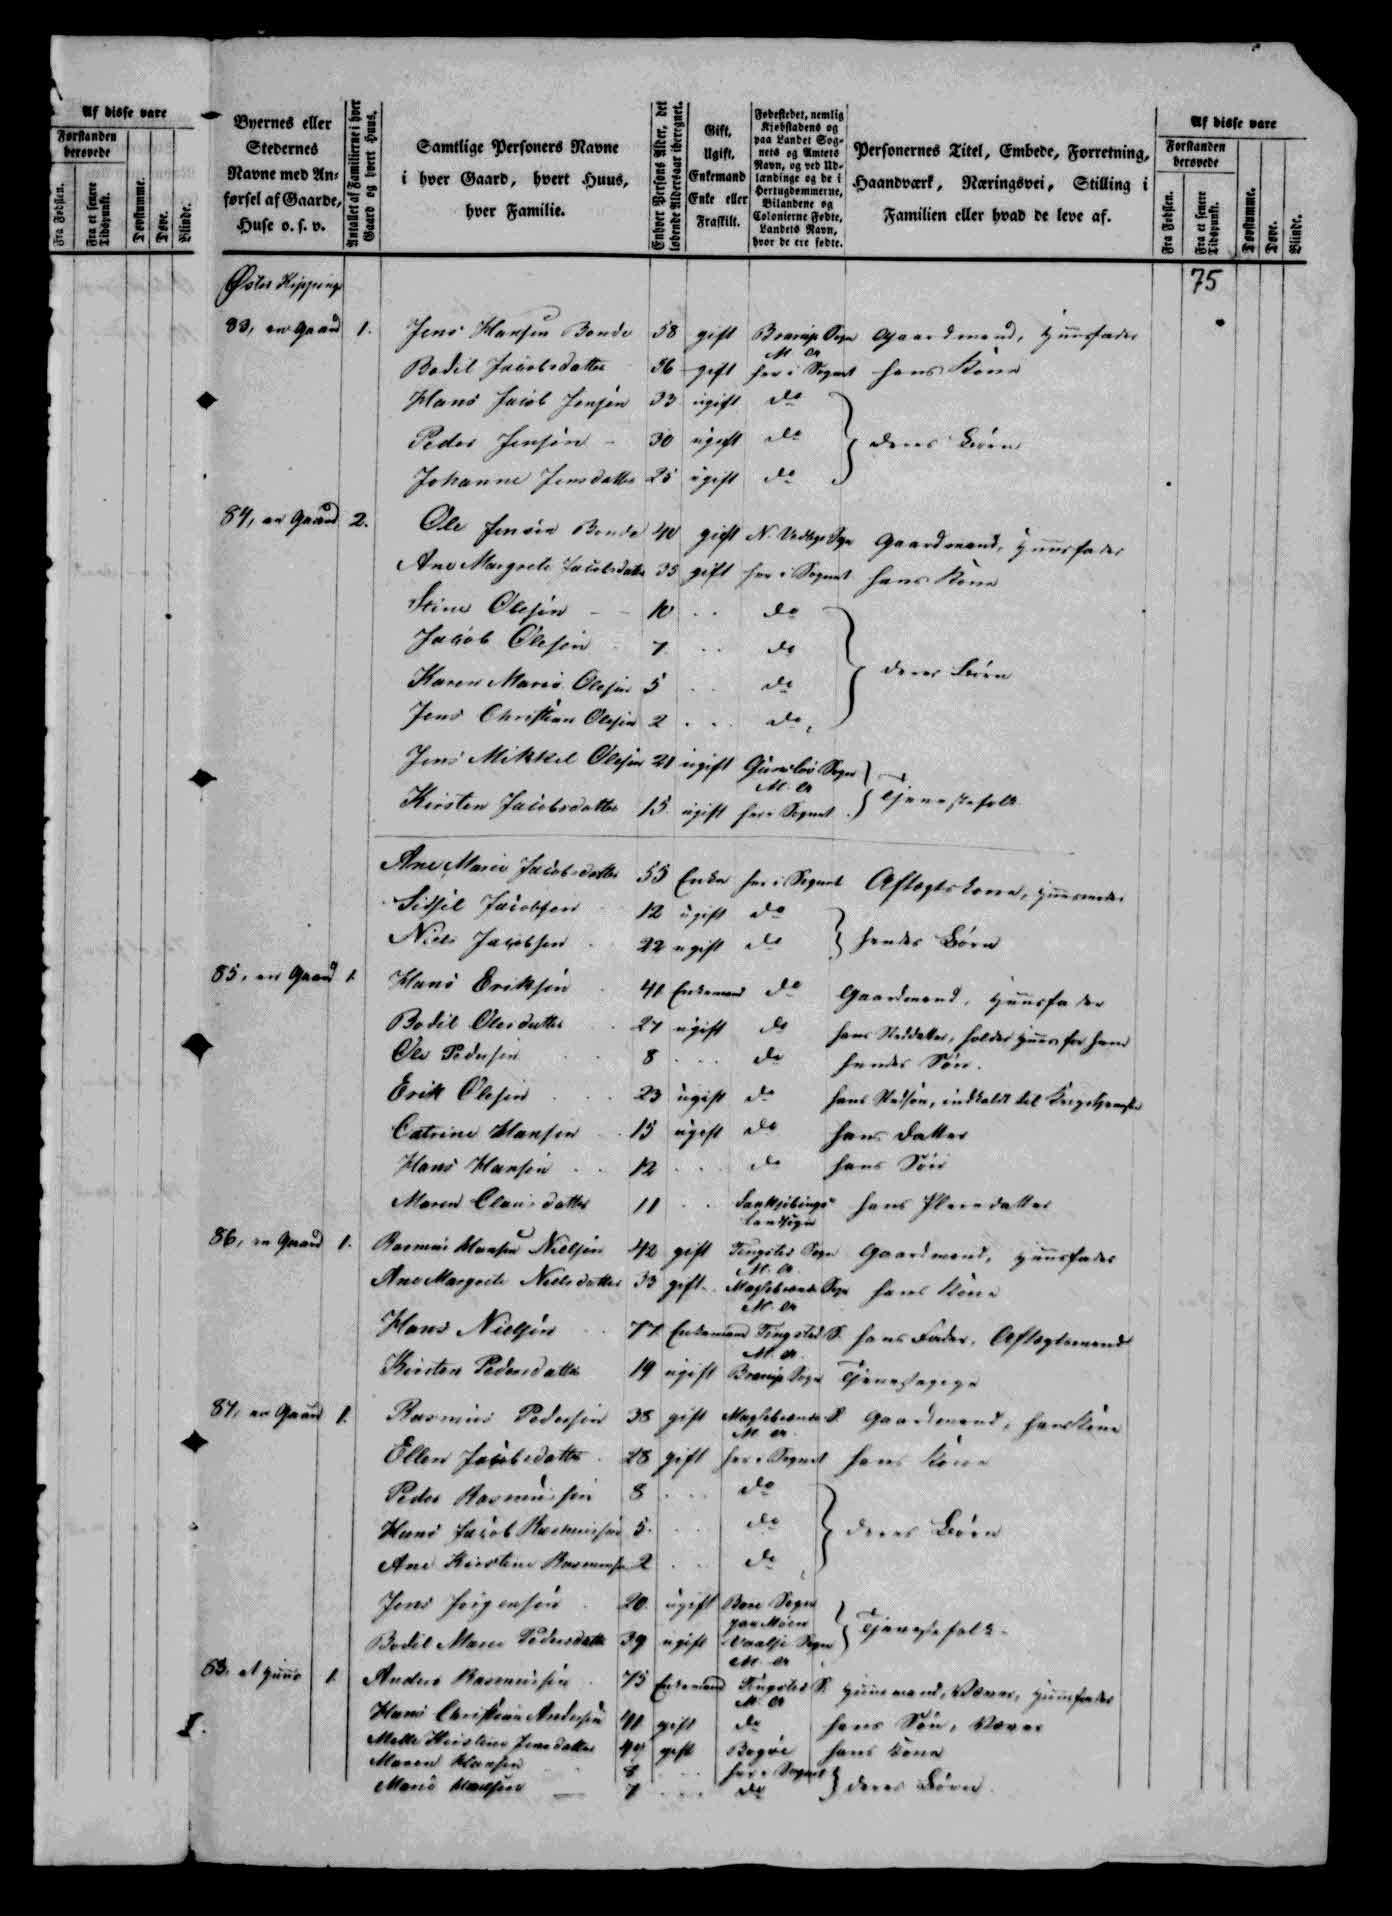 Af disse vare
Forstanden berøvede
Fra Fødslen.
Fra et senere Tidspunkt.
Døvstumme.
Døve.
Blinde.
Byernes eller Stedernes Navne med Anførsel af Gaarde, Huse o. s. v.
Antallet af Familierne i hver Gaard og hvert Huus.
Samtlige Personers Navne i hver Gaard, hvert Huus, hver Familie.
Enhver Persons Alder, det løbende Aldersaar iberegnet.
Gift, Ugift, Enkemand Enke eller Fraskilt.
Fødestedet, nemlig Kjøbstadens og paa Landet Sognets og Amtets Navn, og ved Udlændinge og de i Hertugdømmerne, Bilandene og Colonierne Fødte, Landets Navn, hvor de ere fødte.
Personernes Titel, Embede, Forretning, Haandværk, Næringsvei, Stilling i Familien eller hvad de leve af.
Af disse vare
Forstanden berøvede
Fra Fødslen.
Fra et senere Tidspunkt.
Døvstumme.
Døve.
Blinde.
Øster Kippinge
75
83, en Gaard 1. Jens Hansen Bonde 58 gift Brarup Sogn M. A. Gaardmand, Huusfader
Bodil Jacobsdatter 56 gift her i Sognet hans Kone
Hans Jacob Jensen 33 ugift do
Peder Jensen 30 ugift do } deres Børn
Johanne Jensdatter 25 ugift do
84, en Gaard 2. Ole Jensen Bonde 40 gift N. Vedbye Sogn Gaardmand, Huusfader
Ane Margrete Jacobsdatter 35 gift her i Sognet hans Kone
Stine Olesen 10 do
Jacob Olesen 7 do
Karen Marie Olesen 5 do } deres Børn
Jens Christian Olesen 2 do
Jens Mikkel Olesen 21 ugift Gunslev Sogn M. A.
Kirsten Jacobsdatter 15 ugift her i Sognet } Tjenestefolk
Ane Marie Jacobsdatter 55 Enke her i Sognet Aftægtskone, Huusmoder
Sidsel Jacobsen 12 ugift do
Niels Jacobsen 22 ugift do } hendes Børn
85, en Gaard 1. Hans Eriksen 41 Enkemand do Gaardmand, Huusfader
Bodil Olesdatter 27 ugift do hans Steddatter, holder Huus for ham
Ole Pedersen 8 do hendes Søn.
Erik Olesen 23 ugift do hans Stedsøn, indkaldt til Krigstjeneste
Catrine Hansen 15 ugift do hans Datter
Hans Hansen 12 do hans Søn
Maren Clausdatter 11 Saxkjøbings Landsogn hans Pleiedatter
86, en Gaard 1. Rasmus Hansen Nielsen 42 gift Tingsted Sogn M. A. Gaardmand, Huusfader
Ane Margrete Nielsdatter 33 gift Maglebrænde Sogn M. A. hans Kone
Hans Nielsen 77 Enkemand Tingsted S. M. A. hans Fader, Aftægtsmand
Kirsten Pedersdatter 19 ugift Brarup Sogn Tjenestepige
87, en Gaard 1. Rasmus Pedersen 38 gift Maglebrænde S. M. A. Gaardmand, hans Kone
Ellen Jacobsdatter 28 gift her i Sognet hans Kone
Peder Rasmussen 8 do
Hans Jacob Rasmussen 5 do } deres Børn
Ane Kirstine Rasmussen 2 do
Jens Jørgensen 20 ugift Sogn paa Møen
Bodil Marie Pedersdatter 39 ugift Vaalse Sogn M. A. } Tjenestefolk
et Huus 1. Anders Rasmussen 75 Enkemand Tingsted S. M. A. Huusmand, Væver, Huusfader
Hans Christian Andersen 41 gift do hans Søn, Væver
Mette Kirstine Jensdatter gift Bogøe hans Kone
Maren Hansen 8 her i Sognet
Marie Hansen 7 do } deres Børn.